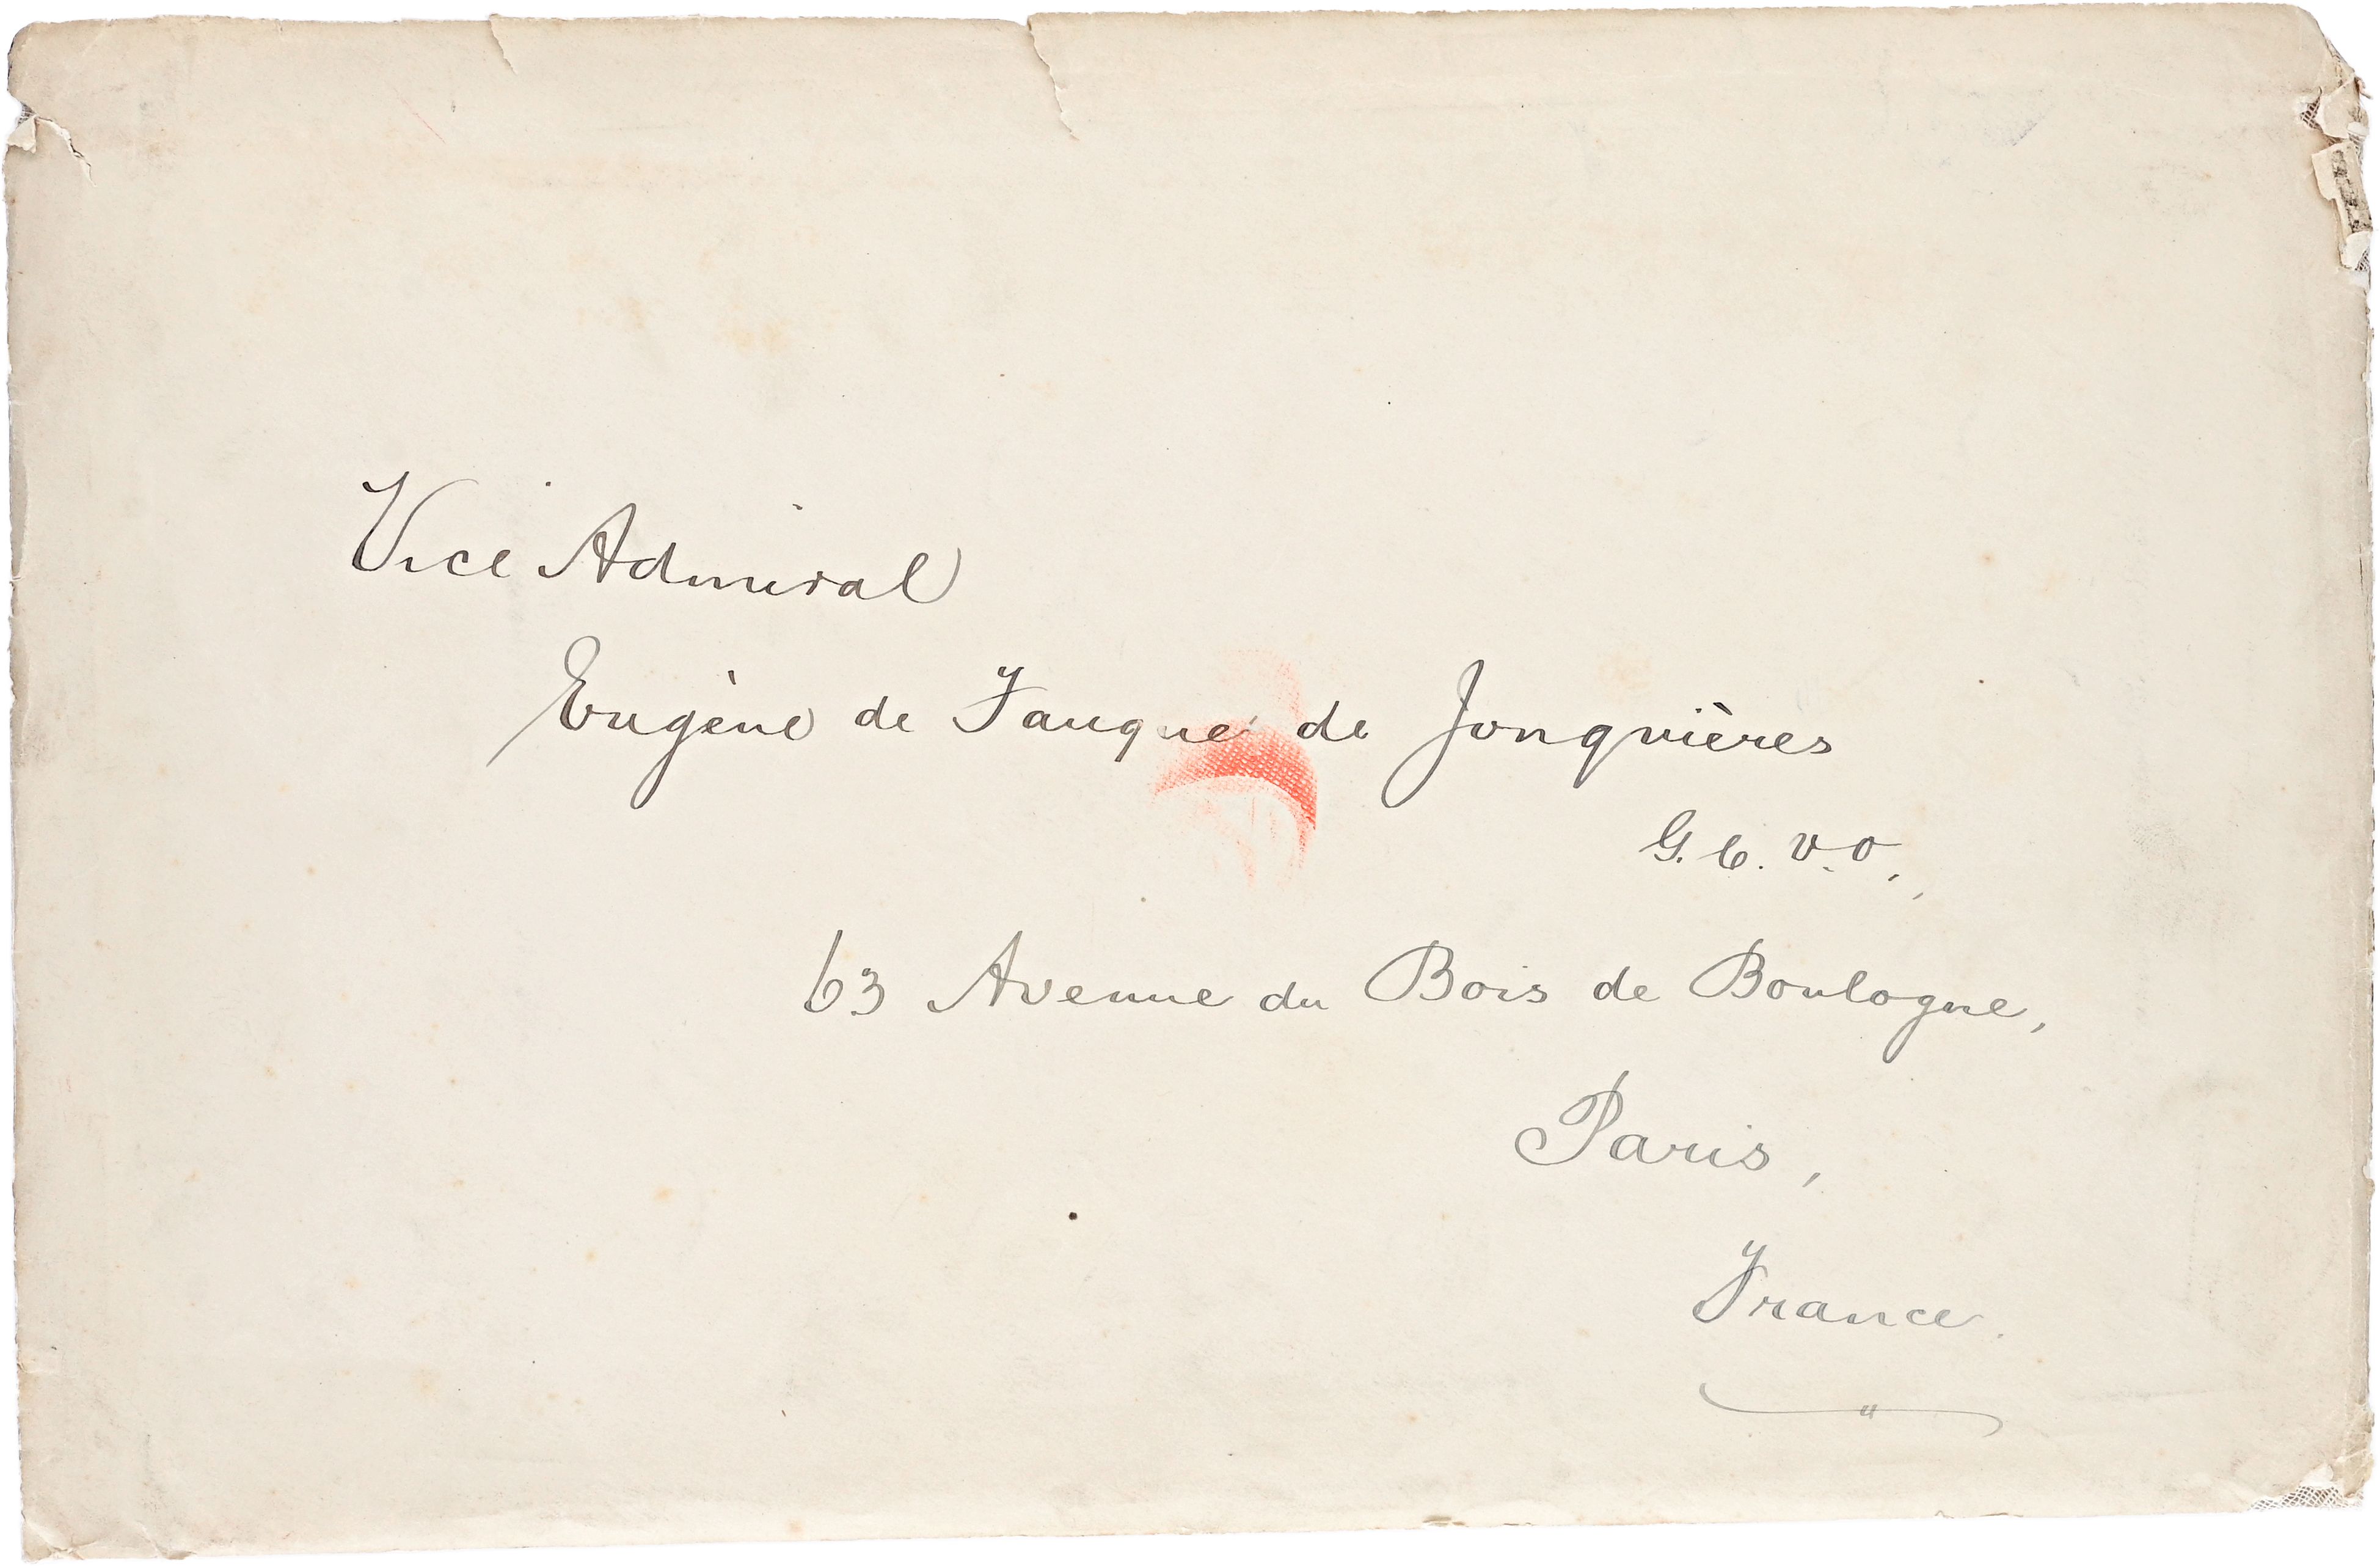 Vice Admiral
Eugène de Fauque de Jonquières
G.C.V.O.,
63 Avenue du Bois de Boulogne,
Paris,
France.